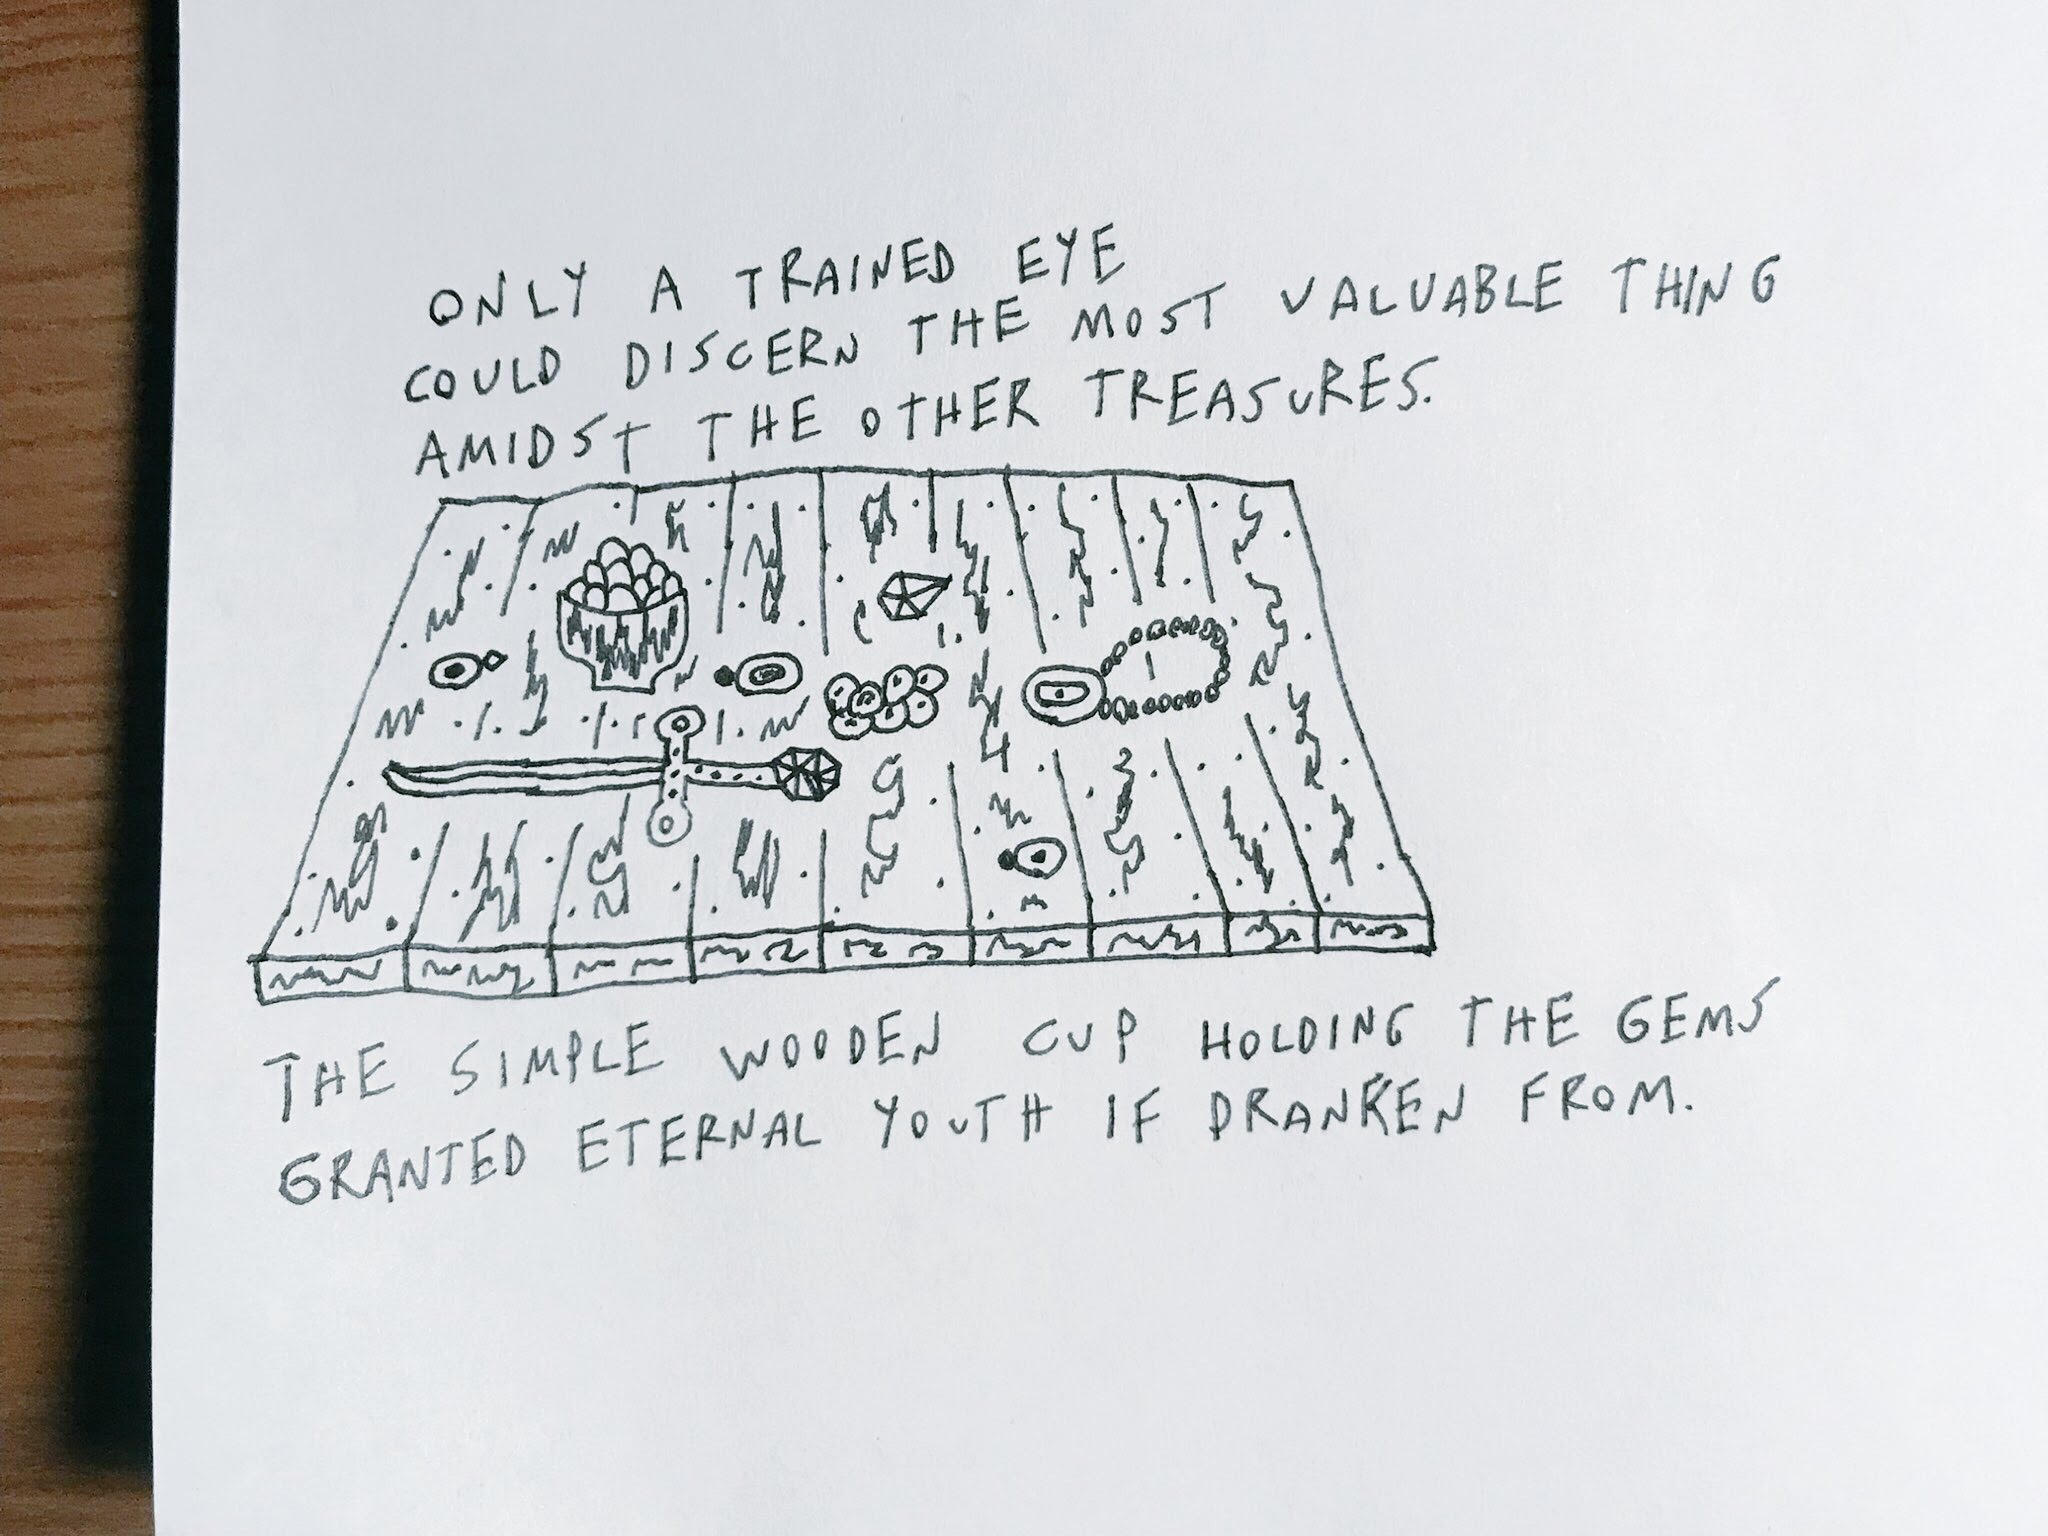 ONLY A TRAINED EYE
COULD DISCERN THE MOST VALUABLE THING
AMIDST THE OTHER TREASURES.
THE SIMPLE WOODEN CUP HOLDING THE GEMS
GRANTED ETERNAL YOUTH IF DRANKEN FROM.